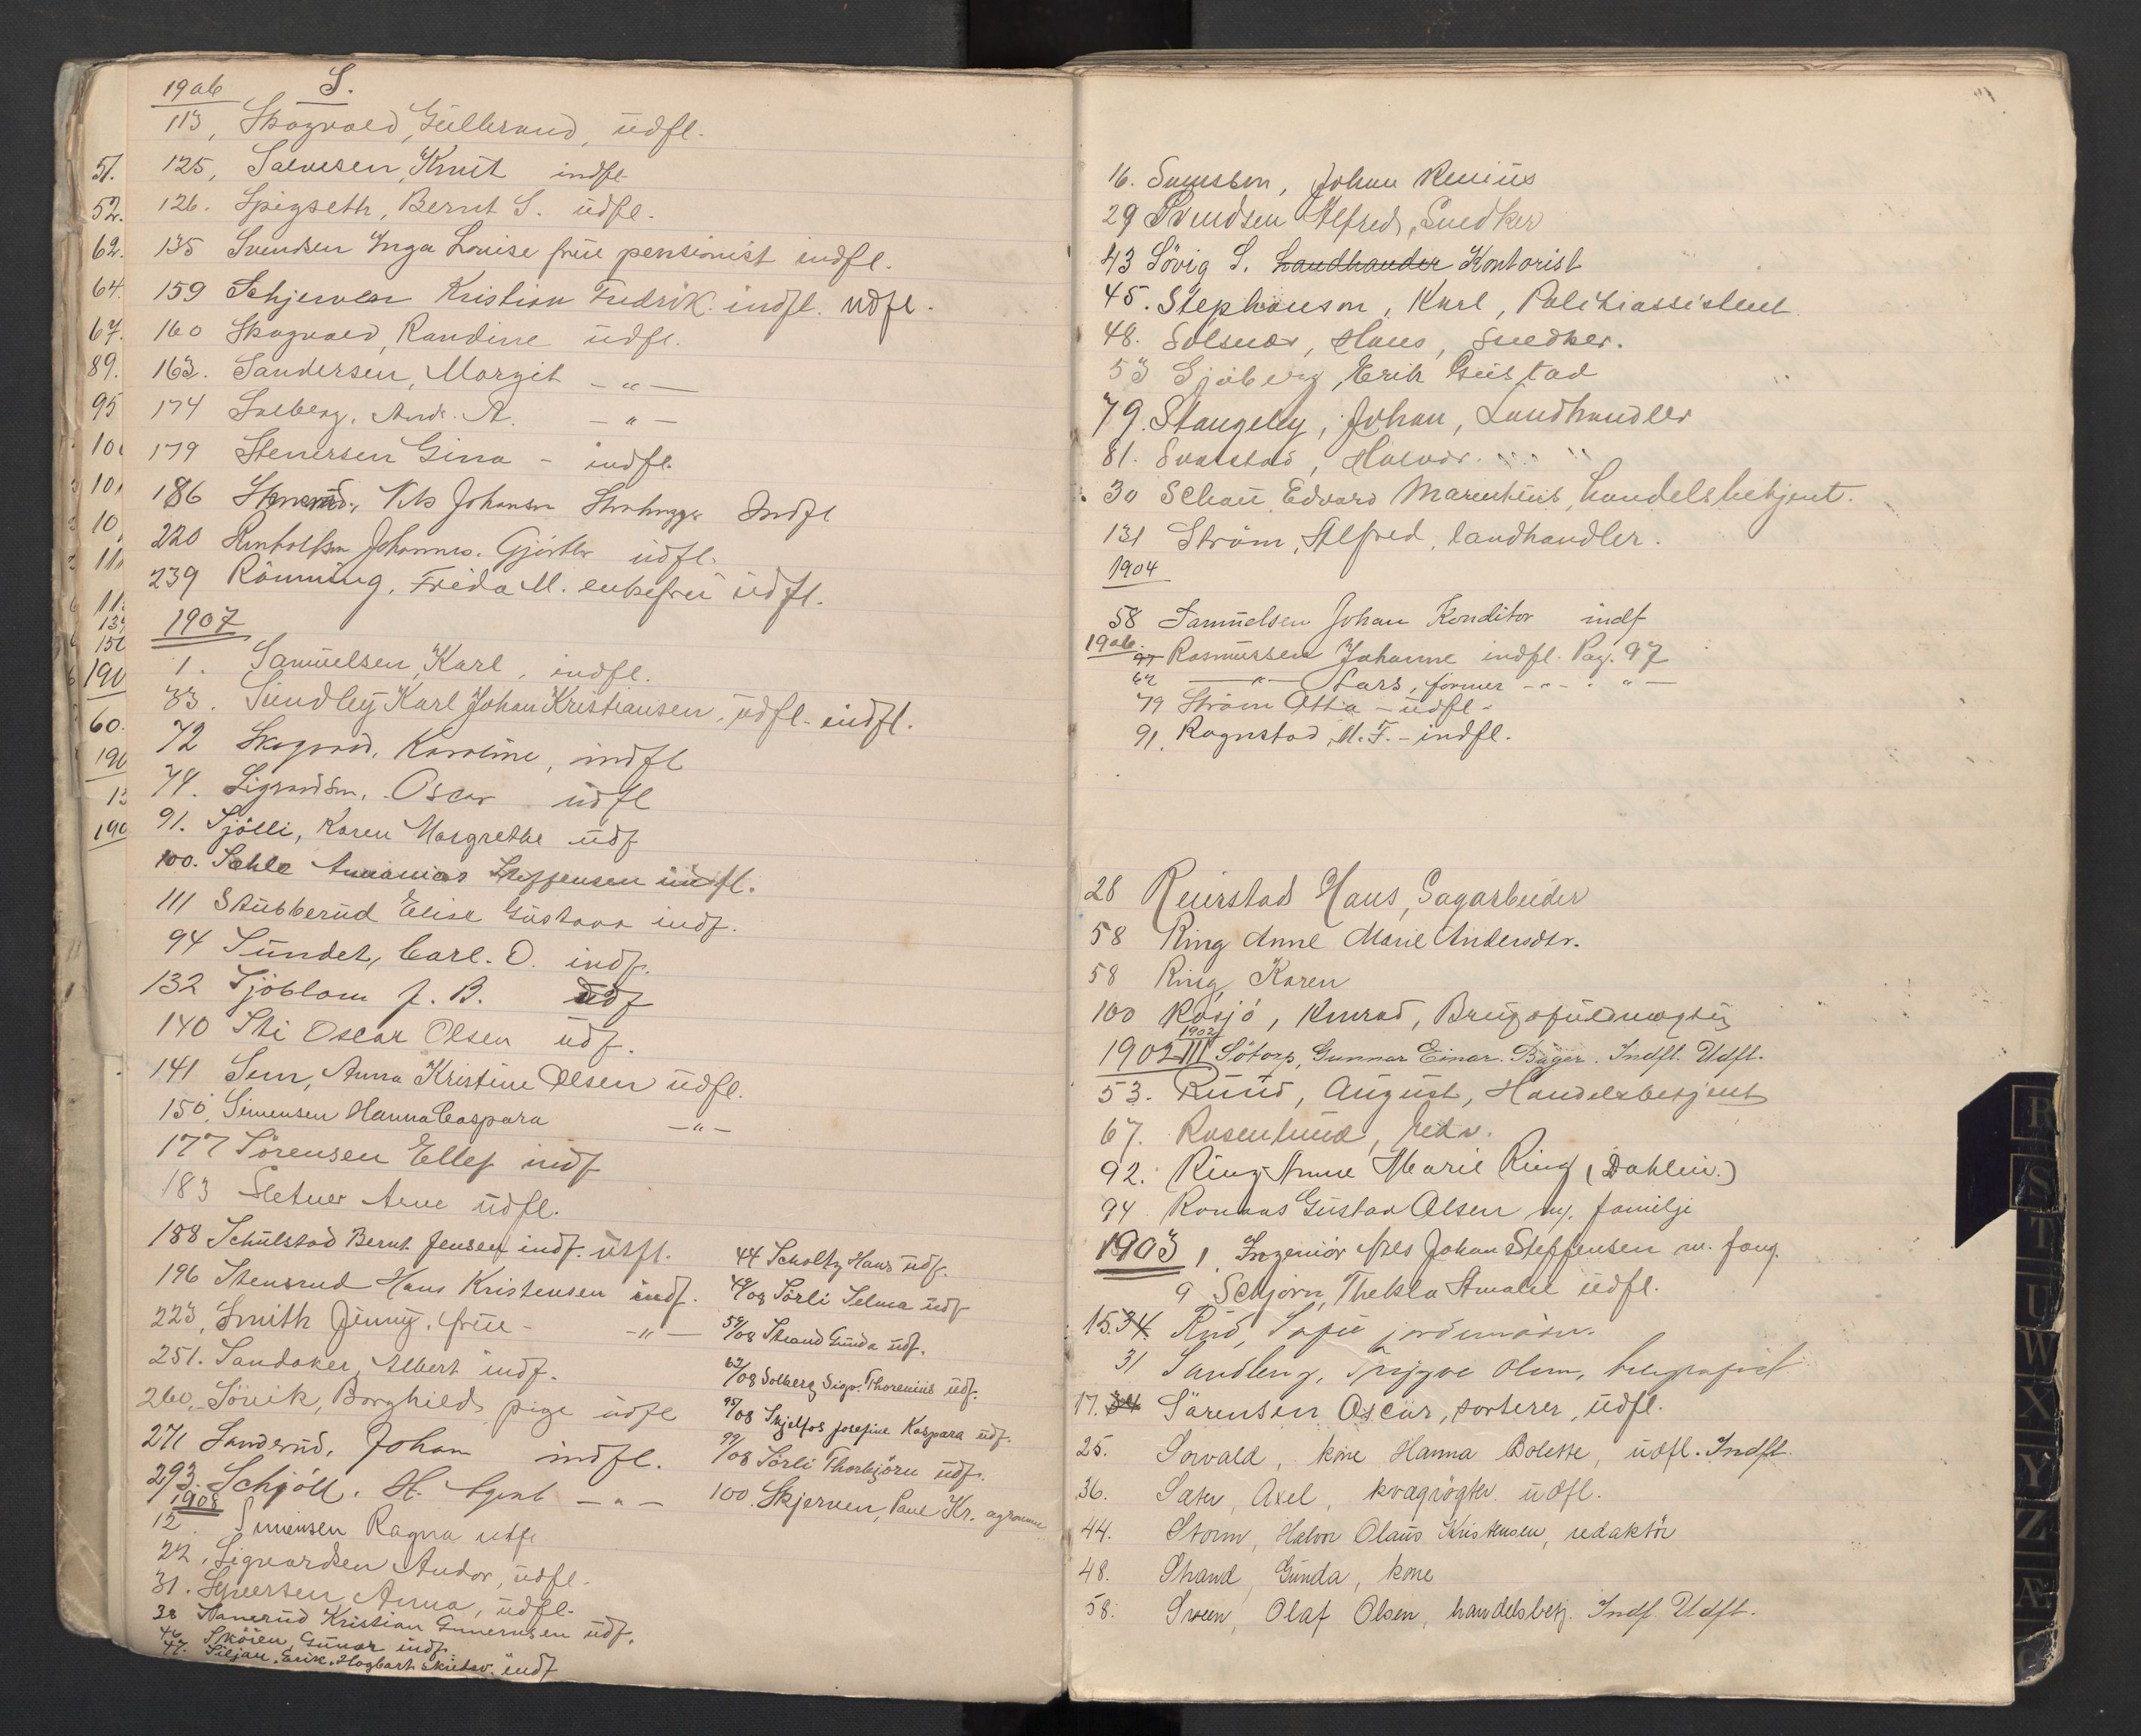 1906 S.
113, Skogvold, Gulbrand, udfl.
125, Salvesen, Knut indfl.
126. Spigseth, Bernt S. udfl.
135 Svendsen Inga Louise frue pensionist indfl.
159 Schjerven Kristian Fredrik. indfl. udfl.
160 Skogvold, Randine udfl.
163. Sandersen, Margit - " -
174 Solberg, Andr. A. - " -
179 Stenersen Gina - indfl.
186 Nils Johansen Indfl
220 Johannes. Gjørtler udfl.
239 Rönning, Frida M. enkefru udfl.
1907
1. Samuelsen, Karl, indfl.
33. Sundby Karl Johan Kristiansen, udfl. indfl.
72 Karoline, indfl
74. Sigvardsen, Oscar udfl
91. Sjølli, Karen Margrethe udf
100. Sahle Ananias Steffensen indfl.
111 Stubberud Elise Gustava indf.
94 Sundet, Carl. O. indf.
132 Sjöblom J. B. udf
140 Sti Oscar Olsen udf.
141 Sem, Anna Kristine Olsen udfl.
150. Simensen Hanna Caspara - " -
177 Sörensen Ellef indf
183 Sletner Arne udfl.
188 Schulstad Bernt Jensen indf. udfl.
196 Stensrud Hans Kristensen indf.
223, Smith Jenny, frue - - " -
251. Sandaker, Albert indf.
260. Sövik, Borghild, pige udfl
271 Sanderud, Johan indfl.
293. Schjöll. H. Agent - " -
1908
12. Simensen Ragna udfl
22. Sigvardsen Andor, udfl.
31. Anna, udfl.
38 Kristian Gunersen udf.
46 Skören, Gunar indf.
47. Siljan, Erik. Hagbart indf
44 Scholtz Hans udf.
48/08 Sörli Selma udf
58/08 Strand Gunda udf.
62/08 Solberg Sigv. Thorenius udf.
95/08 Skjelfos Josefine Kaspara udf.
99/08 Sörli Thorbjörn udf.
100. Skjerven, Paul Kr. agronom
51.
52.
62.
64.
67.
89.
95
16. Svensen, Johan Renius
29 Svendsen Alfred, Snedker
43 Sövig S. Landhandler Kontorist
45. Stephansen, Karl, Politiassistent
48. Solsnæs, Hans, Snedker.
53 Sjöberg, Erik Gustad
79. Stangeby, Johan, Landhandler
81. Svarstad, Halvor. " "
30 Schau, Edvard Marentius, handelsbetjent.
131 Ström, Alfred, landhandler.
1904
58 Samuelsen Johan Konditor indf
1906. 97 Rasmussen Johanne indfl. Pag. 97
62 - " - Lars, former - " - " -
79 Ström Otto - udfl -
91. Rognstad, M. F. - indfl.
28 Reierstad Hans, Sagarbeider
58 Ring Anne Marie Andersdtr.
58 Ring, Karen
100 Rösjö, Konrad, Brugsfuldmægtig
1902
1902 III Sötorp, Gunnar Einar. Bager. Indfl. Udfl.
53. Ruud, August, Handelsbetjent
67. Rosenlund, Edv.
92. Ring Anne Marie Ring (Dahlin.)
94 Romaas Gustav Olsen m. familje
1903 1. Ingeniør Nils Johan Steffensen m. fam.
9 Schjorn, Thekla Amalie udfl.
15. 34. Rud, Sofie jordmoder.
31 Sandberg, Trygve Olsen, telegrafist
17. 34 Sörensen Oscar, sorterer, udfl.
25. Sorvald, kone Hanna Bolette, udfl. Indfl.
36. Sater, Axel, kvægrögter udfl.
44. Storm, Halvor Olaus Kristensen, redaktör
48. Strand, Gunda, kone
58. Sveen, Olaf Olsen, handelsbetj. Indf. Udfl.
R
S
T
U
W
X
Y
Z
Æ
Ø